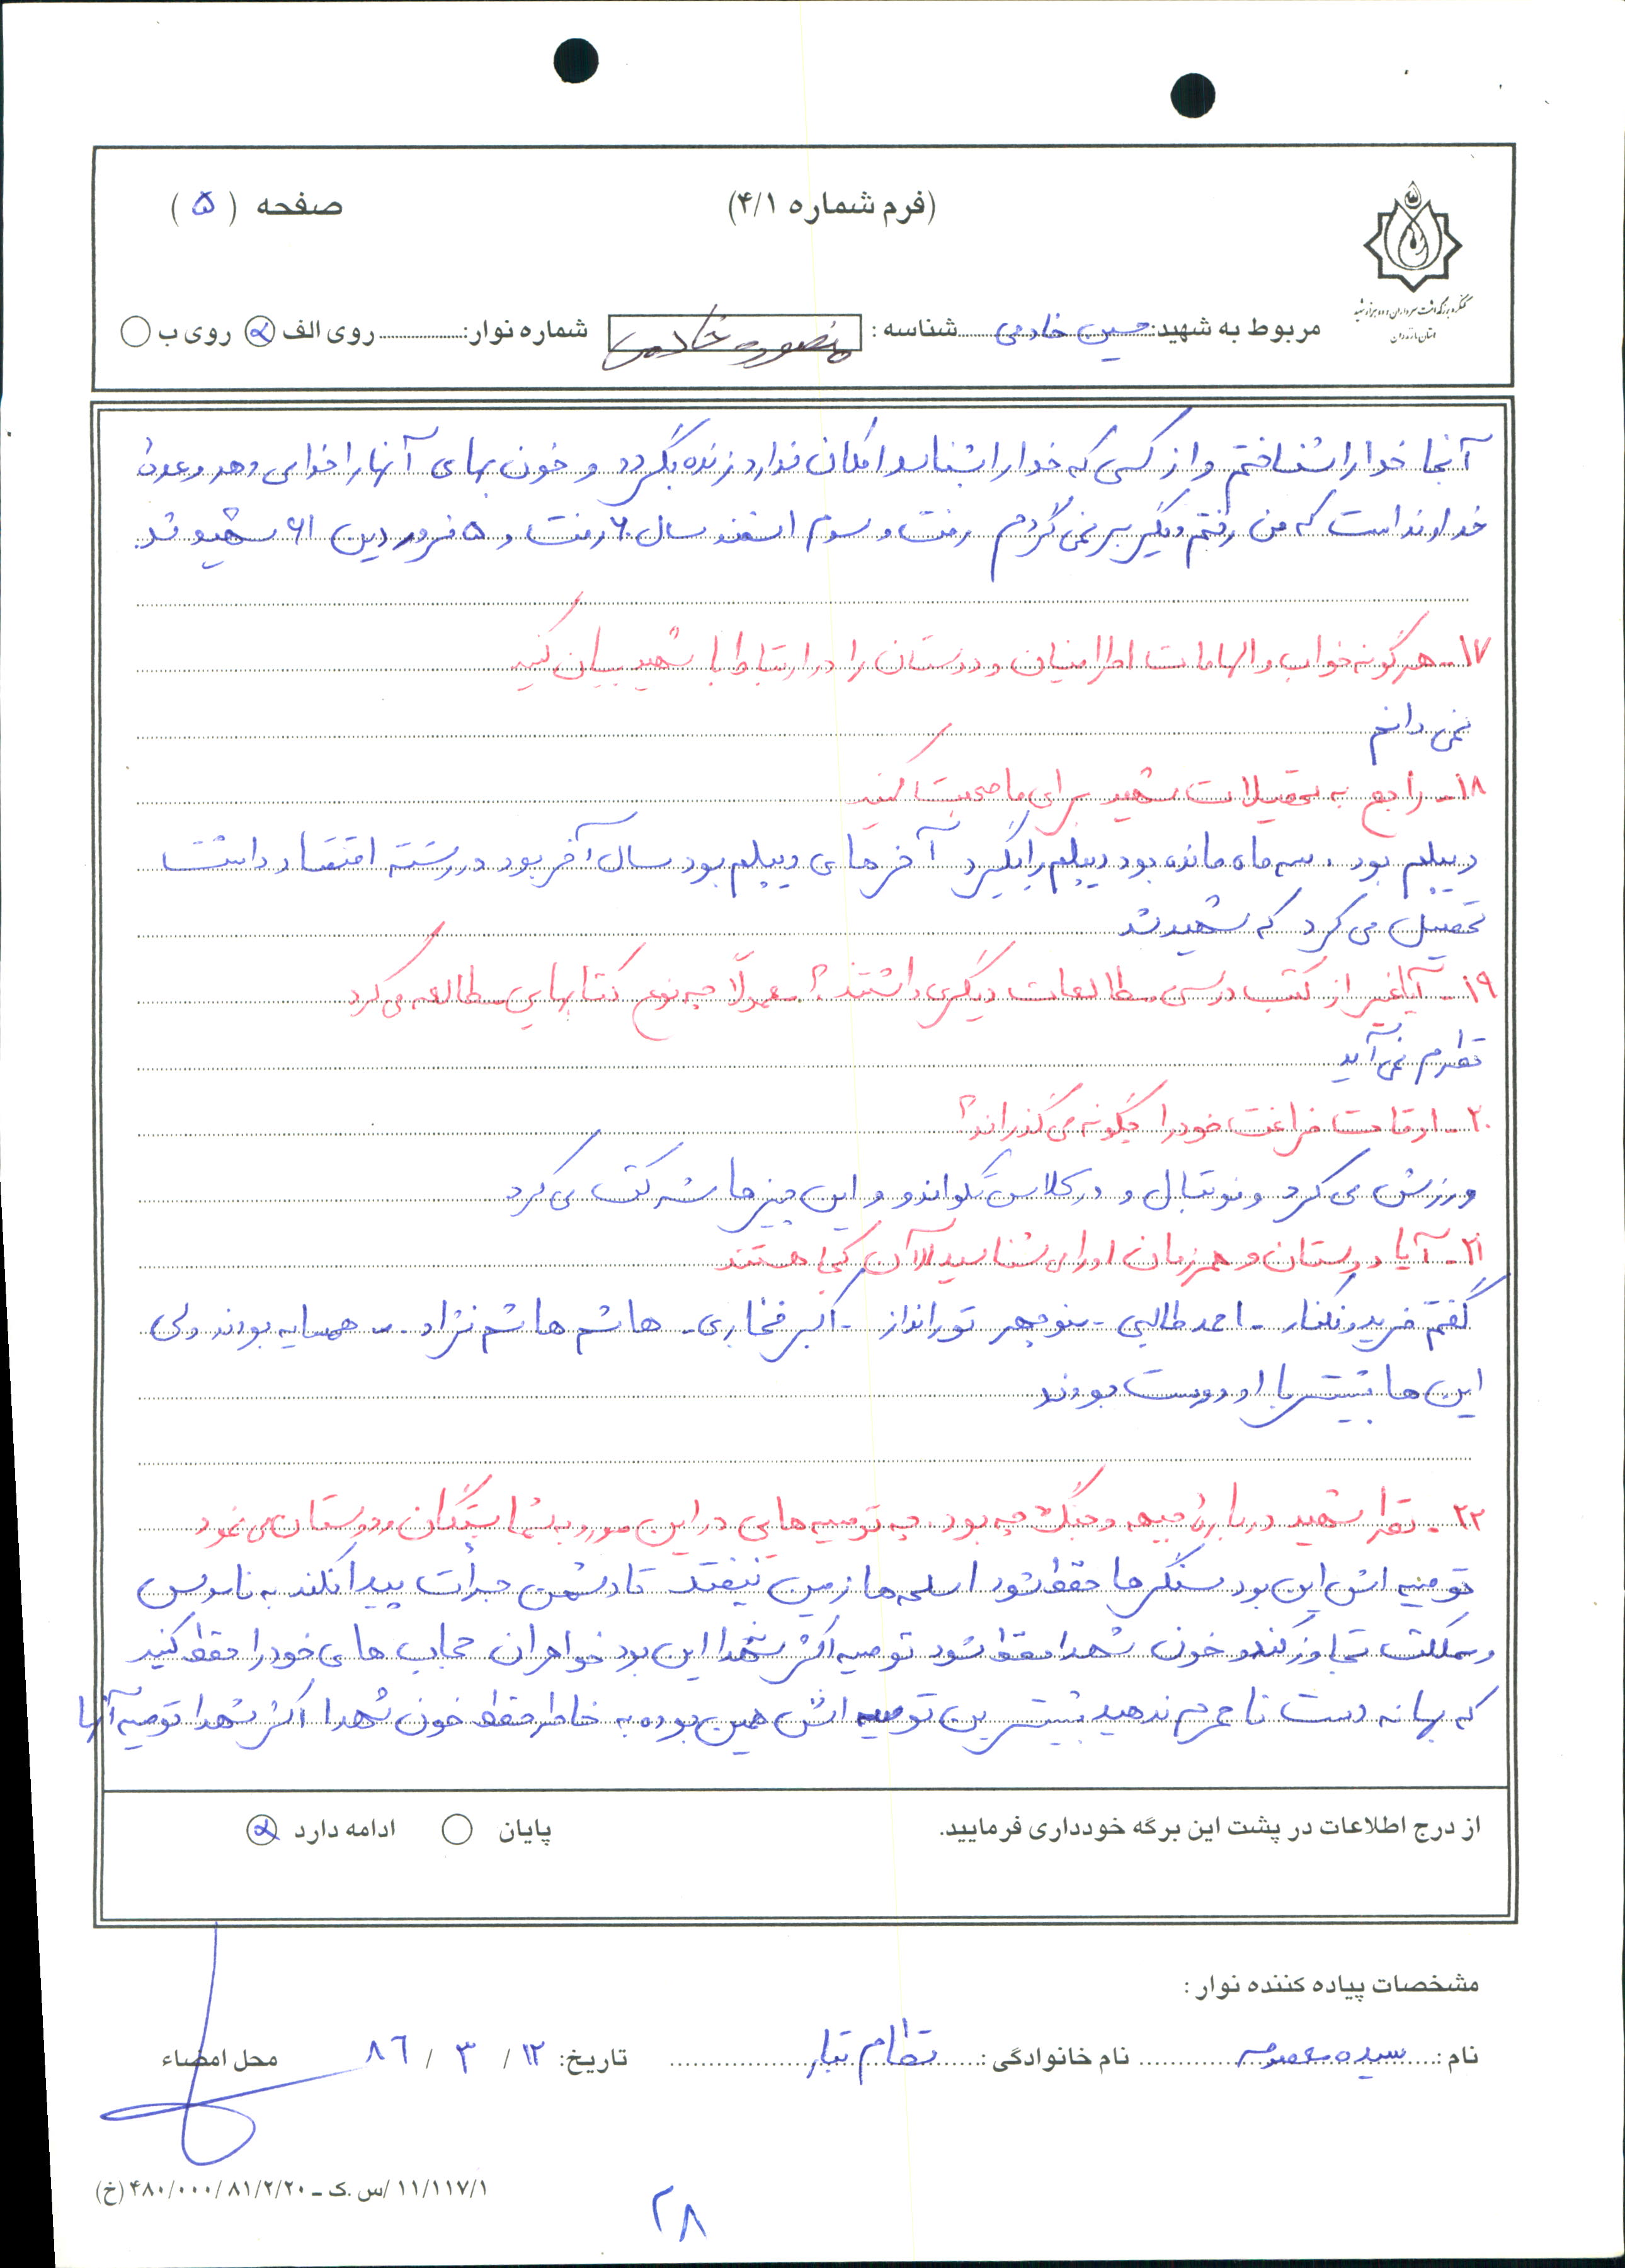 (فرم شماره ۴/۱)
صفحه ( ۵ )
کنگره بزرگداشت سرداران و ده هزار شهید
استان مازندران
مربوط به شهید: حسین خادمی شناسه: منصوره خادمی شماره نوار: روی الف روی ب
آنجا خدا را شناختم و از کسی که خدا را بشناسد امکان ندارد زنده بگردد و خون بهای آنها را خدا می دهد وعده
خداوند است که من رفتم دیگر بر نمی گردم رفت و سوم اسفند سال ۶۰ رفت و ۵ فروردین ۶۱ شهید شد.
۱۷- هرگونه خواب و الهامات اطرافیان و دوستان را در ارتباط با شهید بیان کنید
نمی دانم
۱۸- راجع به تحصیلات شهید برای ما صحبت کنید
دیپلم بود. سه ماه مانده بود دیپلم را بگیرد آخرهای دیپلم بود سال آخر بود در رشته اقتصاد داشت
تحصیل می کرد که شهید شد
۱۹- آیا غیر از کتب درسی مطالعات دیگری داشتند؟ معمولاً چه نوع کتابهایی مطالعه می کرد
نظرم نمی آید
۲۰- اوقات فراغت خود را چگونه می گذراند؟
ورزش می کرد و فوتبال و در کلاس تکواندو و این چیزها شرکت می کرد
۲۱- آیا دوستان و همرزمان او را می شناسید الآن کجا هستند
گفتم فریدونکنار - احمد طالبی - منوچهر تورانداز - اکبر فخاری - هاشم هاشم نژاد - همسایه بودند ولی
این ها بیشتر با او دوست بودند
۲۲- نظر شهید درباره جبهه و جنگ چه بود. چه توصیه هایی در این مورد به شما بستگان و دوستان می نمود
توصیه اش این بود سنگرها حفظ شود اسلحه ها زمین نیفتد تا دشمن جرأت پیدا نکند به ناموس
و مملکت تجاوز کند و خون شهدا حفظ شود توصیه اکثر شهدا این بود خواهران حجاب های خود را حفظ کنید
که بهانه دست نامحرم ندهید بیشترین توصیه اش همین بوده به خاطر حفظ خون شهدا اکثر شهدا توصیه آنها
از درج اطلاعات در پشت این برگه خودداری فرمایید.
پایان ادامه دارد
مشخصات پیاده کننده نوار:
نام: سیده معصومه نام خانوادگی: نظام تبار تاریخ: ۱۲ / ۳ / ۸۶ محل امضاء
۱۱/۱۱۷/۱ /س.ک - ۴۸۰/۰۰۰/۸۱/۲/۲۰ (خ)
۲۸